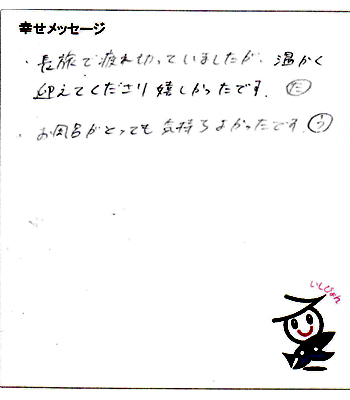 幸せメッセージ
・長旅で疲れ切っていましたが、温かく
迎えてくださり嬉しかったです。 た
・お風呂がとっても気持ちよかったです。 う
いしぴょん